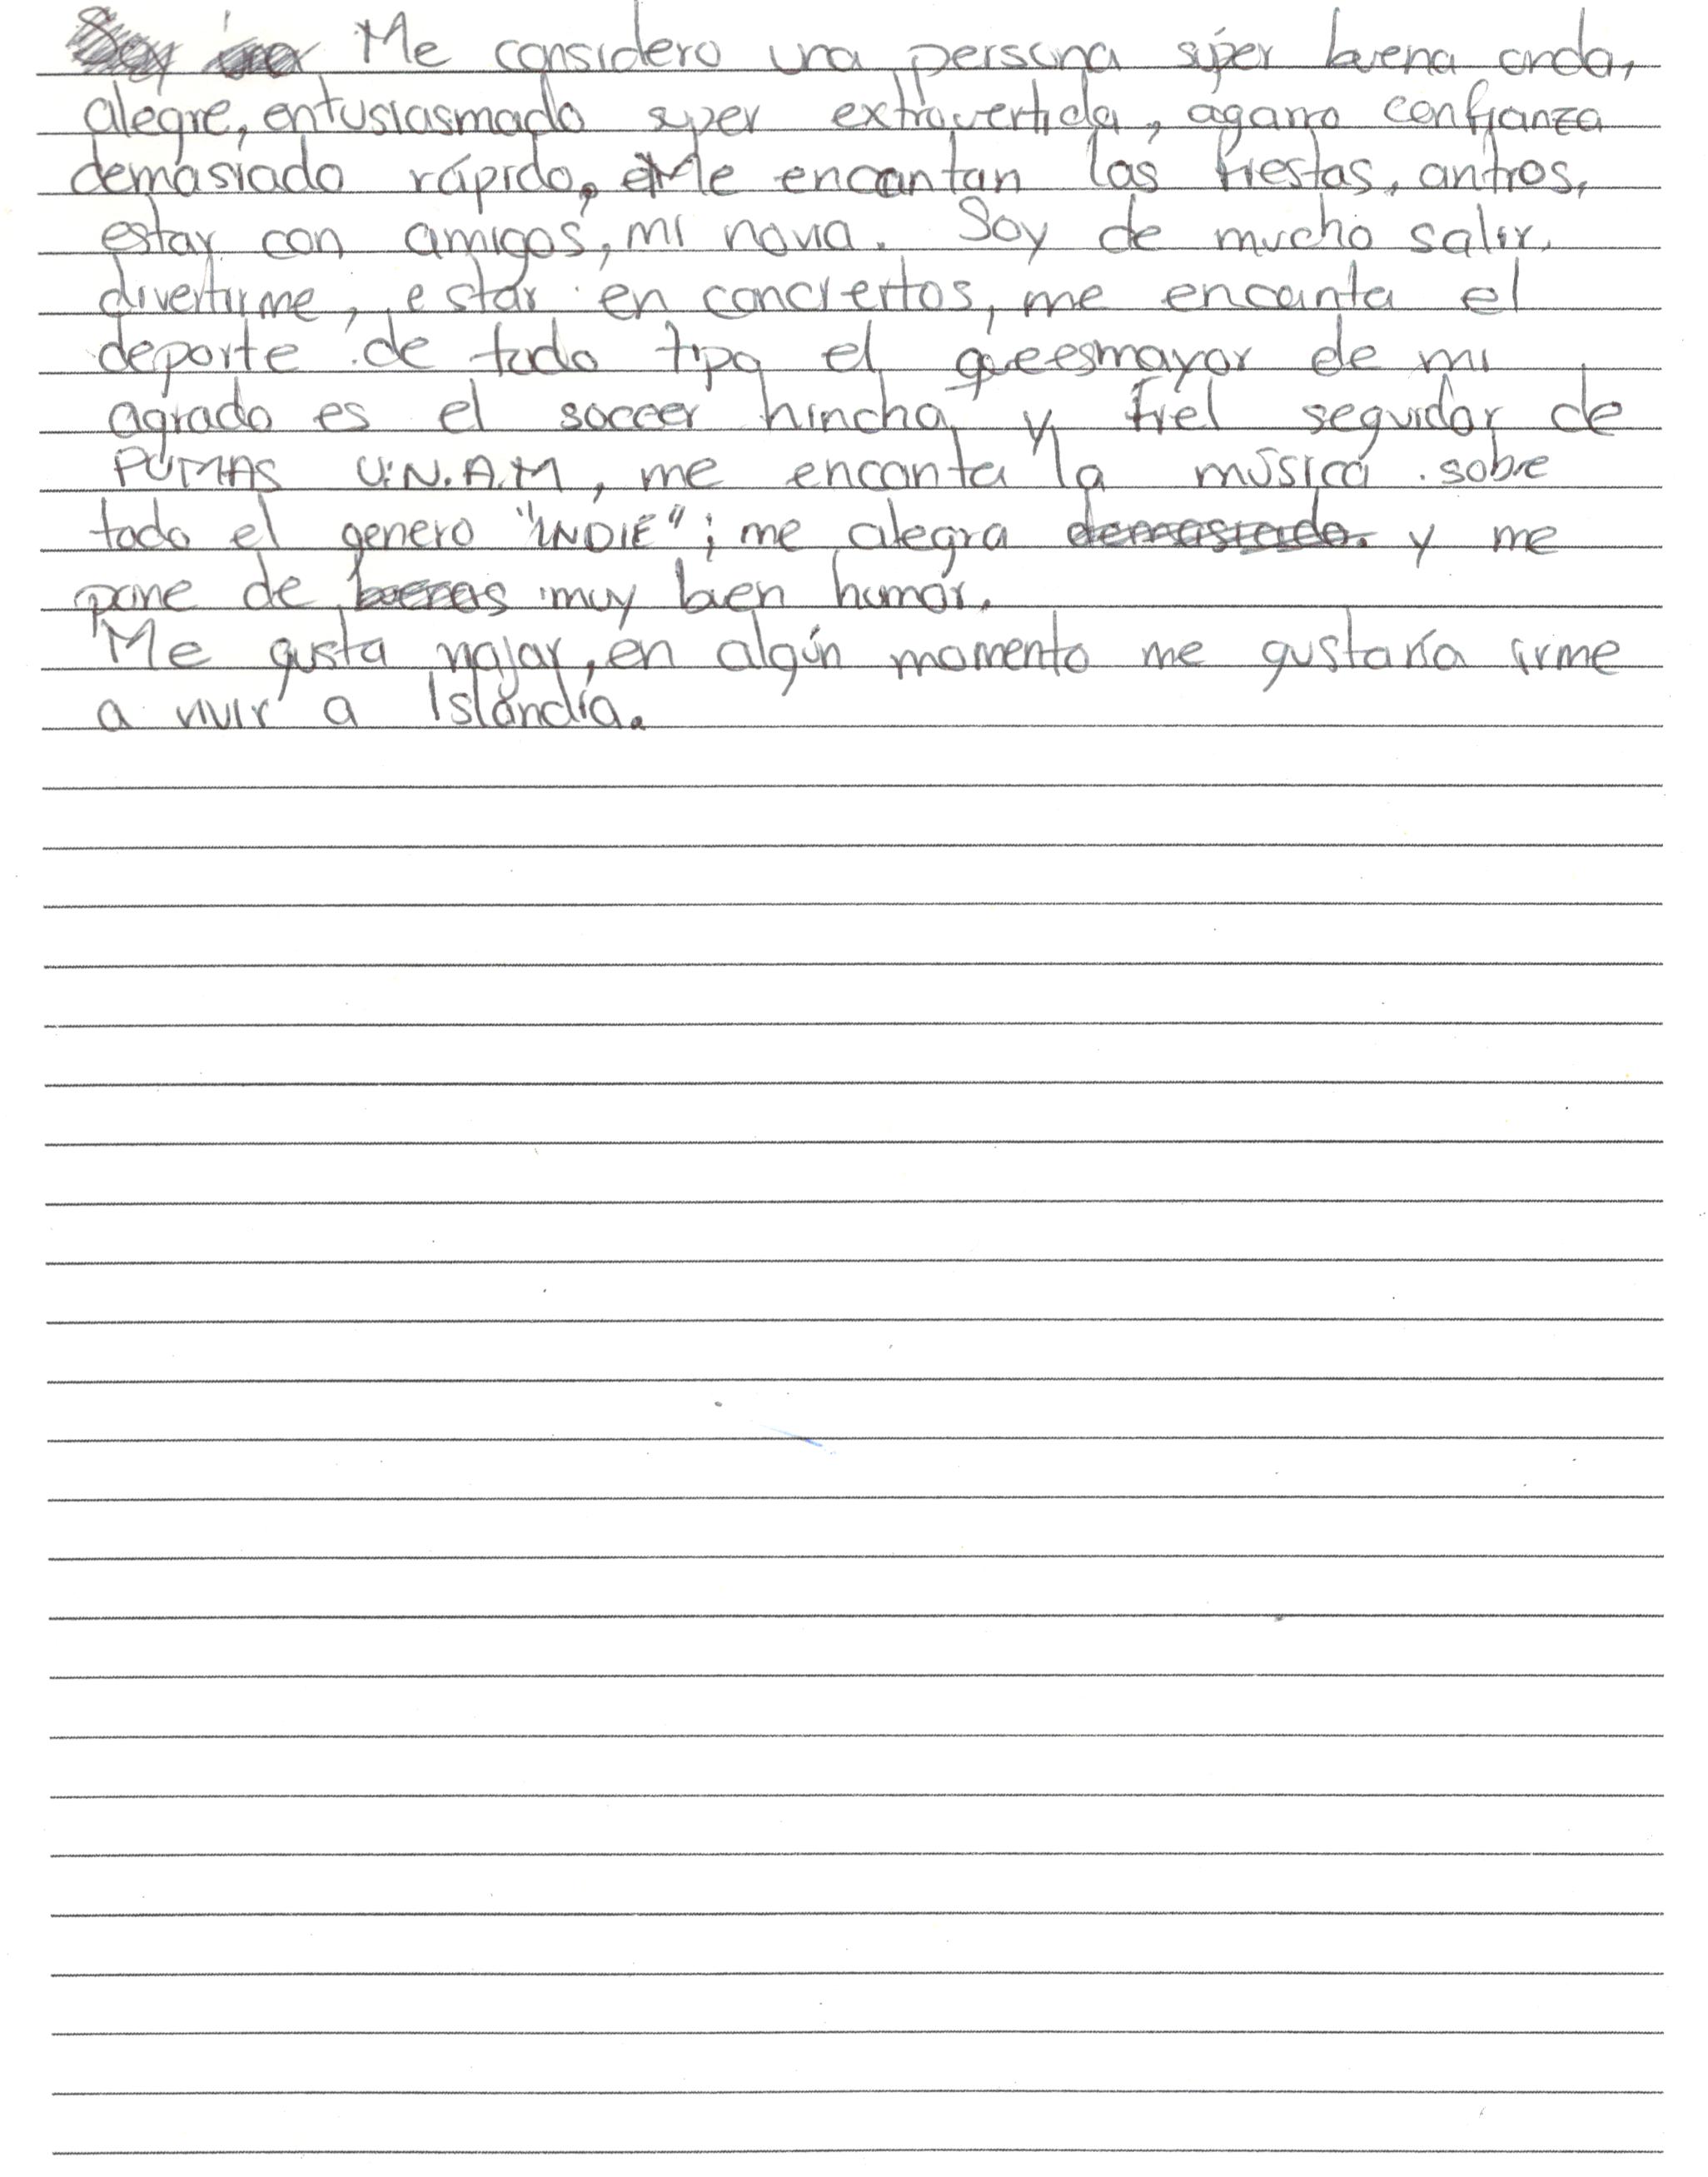 Me considero una persona súper buena onda,
alegre, entusiasmado super extrovertida, agarro confianza
demasiado rápido. Me encantan las fiestas, antros,
estar con amigos, mi novia. Soy de mucho salir,
divertirme, estar en conciertos, me encanta el
deporte de todo tipo el que es mayor de mi
agrado es el soccer hincha y fiel seguidor de
PUMAS U.N.A.M, me encanta la música sobre
todo el genero "INDIE"; me alegra demasiado. y me
pone de buenas muy buen humor.
Me gusta viajar, en algún momento me gustaría irme
a vivir a Islandia.